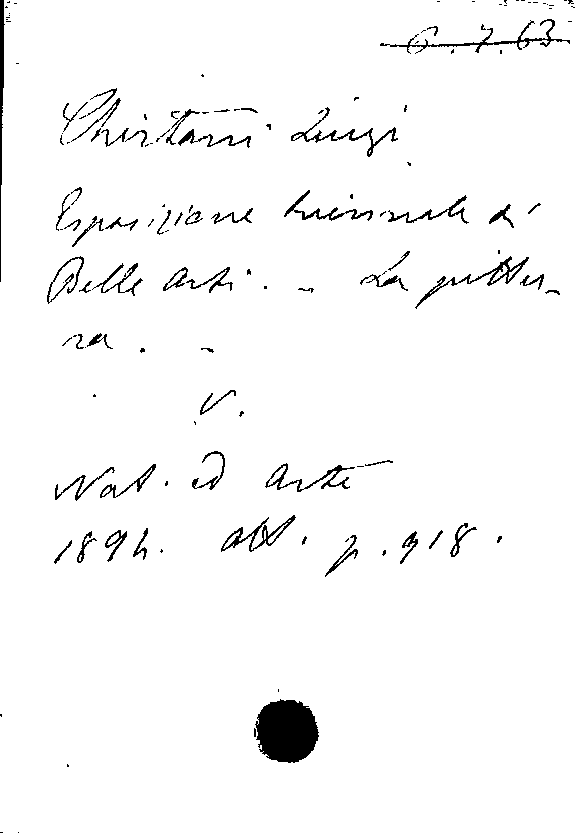 6.7.63
Chirtani Luigi
Esposizione triennale di
Belle Arti. - La pittu-
ra. -
V.
Nat. ed Arte
1894. ott. p. 918.